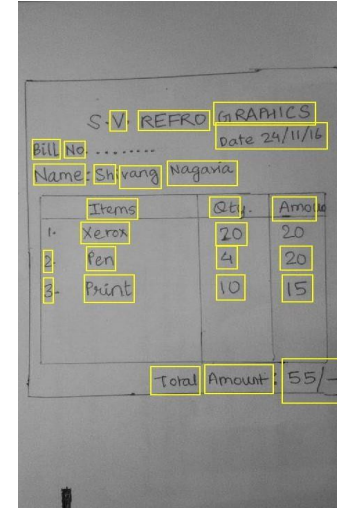 S.V. REFRO GRAPHICS
Date 24/11/16
Bill No. ........
Name: Shivang Nagaria
Items Qty. Amou
1. Xerox 20 20
2. Pen 4 20
3. Print 10 15
Total Amount: 55/-